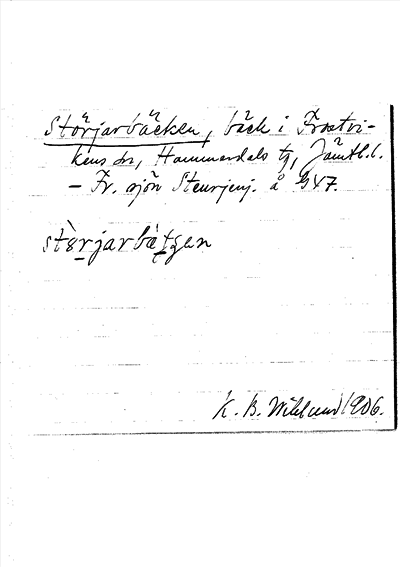 Störjarbäcken, bäck i Frostvi-
kens sn, Hammerdals tg, Jämtl. l.
– Fr. sjön Steurjenj. å 947.
stòrjarbètsen
K. B. Wiklund 1906.